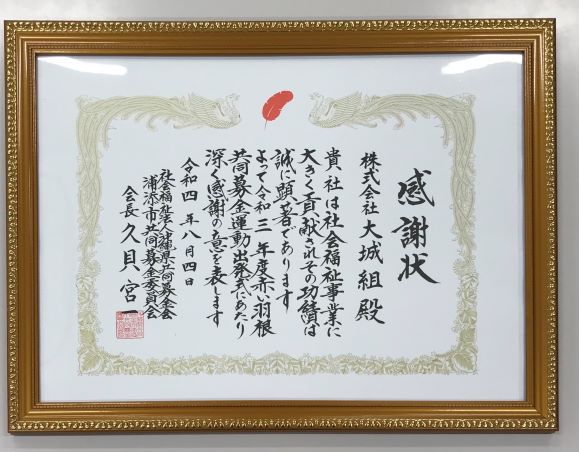 感謝状
株式会社 大城組 殿
貴社は社会福祉事業に
大きく貢献されその功績は
誠に顕著であります
よって令和三年度赤い羽根
共同募金運動出発式にあたり
深く感謝の意を表します
令和四年八月四日
社会福祉法人沖縄県共同募金会
浦添市共同募金委員会
会長 久貝宮一